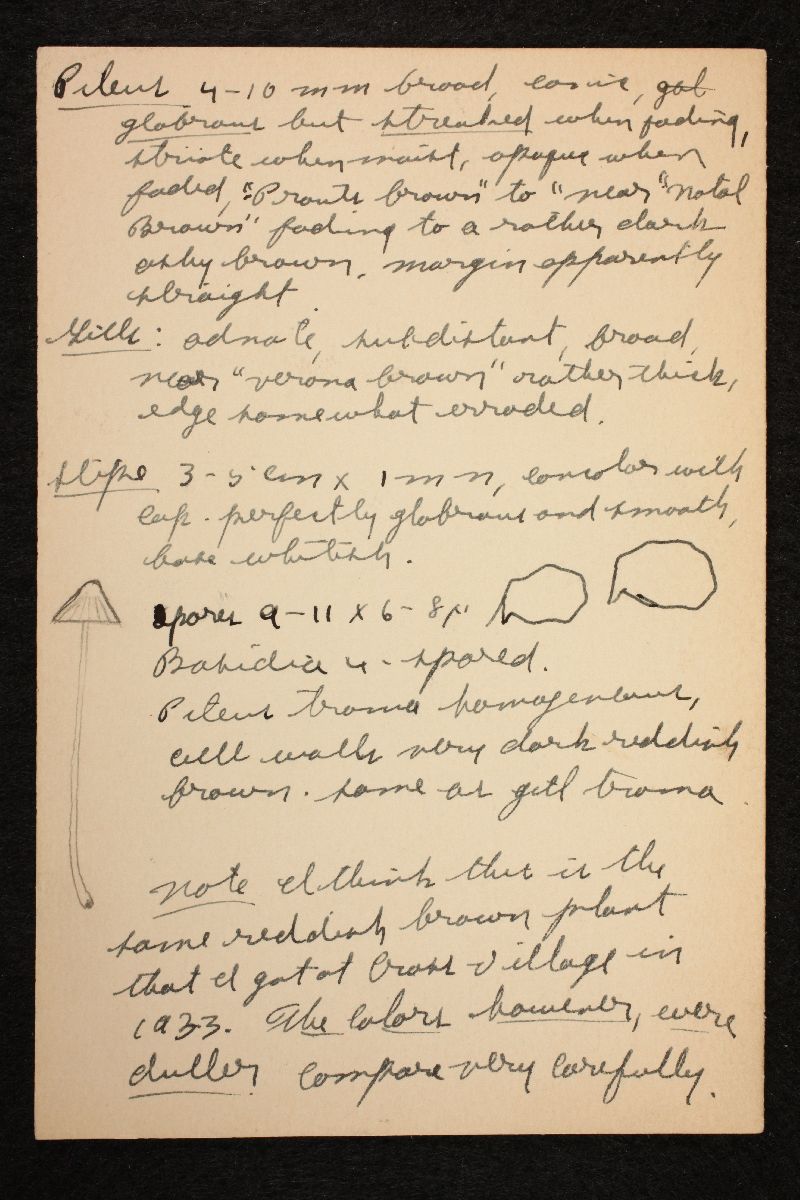 Pileus 4-10 mm broad, conic, gab
glabrous but streaked when fading,
striate when moist, opaque when
faded, "Prouts brown" to "near "Natal
Brown" fading to a rather dark
ashy brown, margin apparently
straight.
Gills: adnate, subdistant, broad,
near "verona brown" rather thick,
edge somewhat erroded.
Stipe 3-5 cm x 1 mm, concolor with
cap. perfectly glabrous and smooth,
base whitish.
spores 9-11 x 6-8µ
Basidia 4-spored.
Pileus trama homogeneous,
cell walls very dark reddish
brown. same as gill trama
Note I think this is the
same reddish brown plant
that I got at Cross Village in
1933. The colors however, were
duller. Compare very carefully.